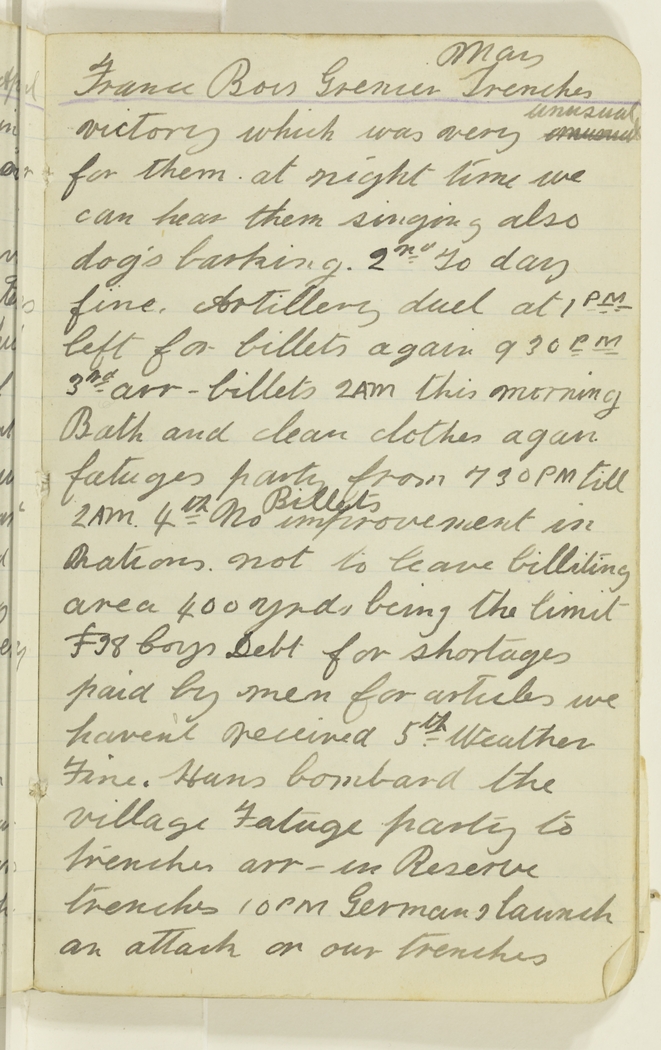 May
France Bois Grenier Trenches
unusual
victory which was very
for them. at night time we
can hear them singing also
dog's barking. 2nd To day
fine. Artillery duel at 1 PM
left for billets again 9 30 PM
3rd arr - billets 2AM this morning
Bath and clean clothes again
fatuges party from 7 30 PM till
Billets
2AM. 4th No improvement in
Rations. not to leave billiting
area 400 yrds being the limit
£98 boys Debt for shortages
paid by men for articles we
havent received 5th Weather
Fine. Huns bombard the
village Fatuge party to
trenches arr - in Reserve
trenches 10 PM Germans launch
an attack on our trenches